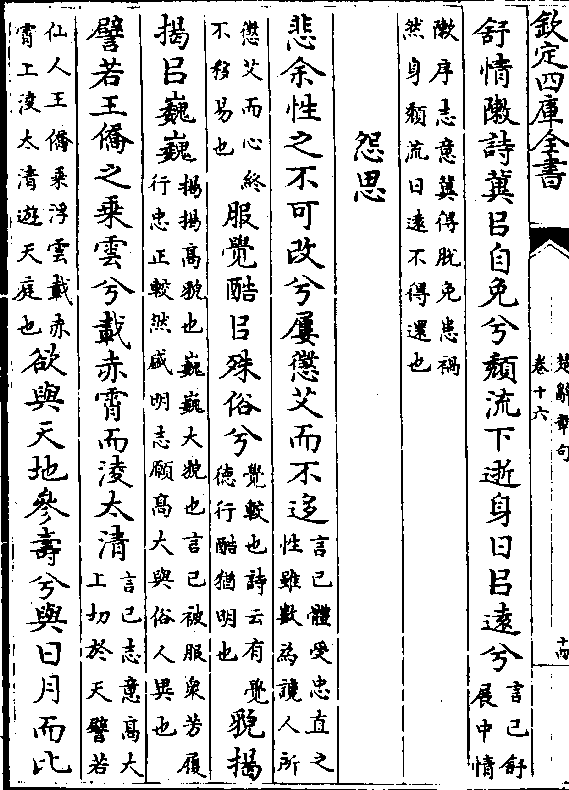 欽定四庫全書
楚辭章句
卷十六
十四
舒情敶詩冀㠯自免兮頽流下逝身日㠯遠兮言己舒展中情
敶序志意冀得脫免患禍然身頽流日遠不得還也
怨思
悲余性之不可改兮屢懲艾而不迻言己體受忠直之性雖數為讒人所
懲艾而心終不移易也服覺酷㠯殊俗兮覺較也詩云有覺德行酷猶明也貌揭
揭㠯巍巍揭揭高貌也巍巍大貌也言己被服衆芳履行忠正較然盛明志願高大與俗人異也
譬若王僑之乘雲兮載赤霄而淩太清言己志意高大上切於天譬若
仙人王僑乘浮雲載赤霄上淩太清遊天庭也欲與天地參壽兮與日月而比